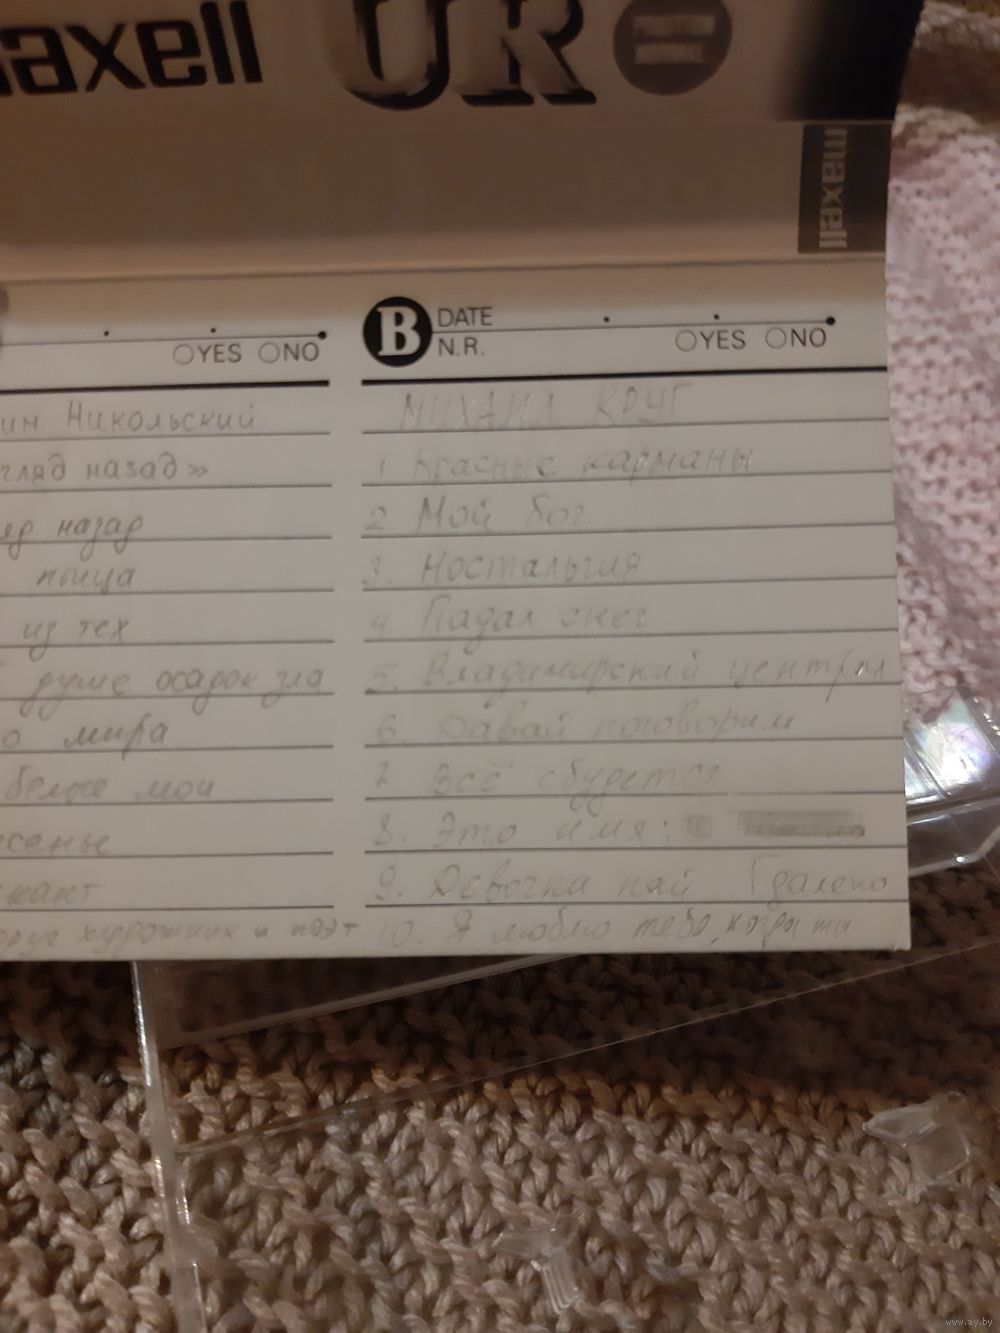 maxell UR
POSITION
NORMAL
maxell
YES NO
ин Никольский
гляд назад»
яд назад
птица
из тех
душе осадок зла
о мира
белые мои
есенье
кант
друг художник и поэт
B DATE
N.R. YES NO
МИХАИЛ КРУГ
1 Красные карманы
2. Мой бог
3. Ностальгия
4 Падал снег
5. Владимирский централ
6. Давай поговорим
7. Всё сбудется
8. Это имя:
9. Девочки пай Гдалеко
10. Я люблю тебя, когда ты
www.ay.by